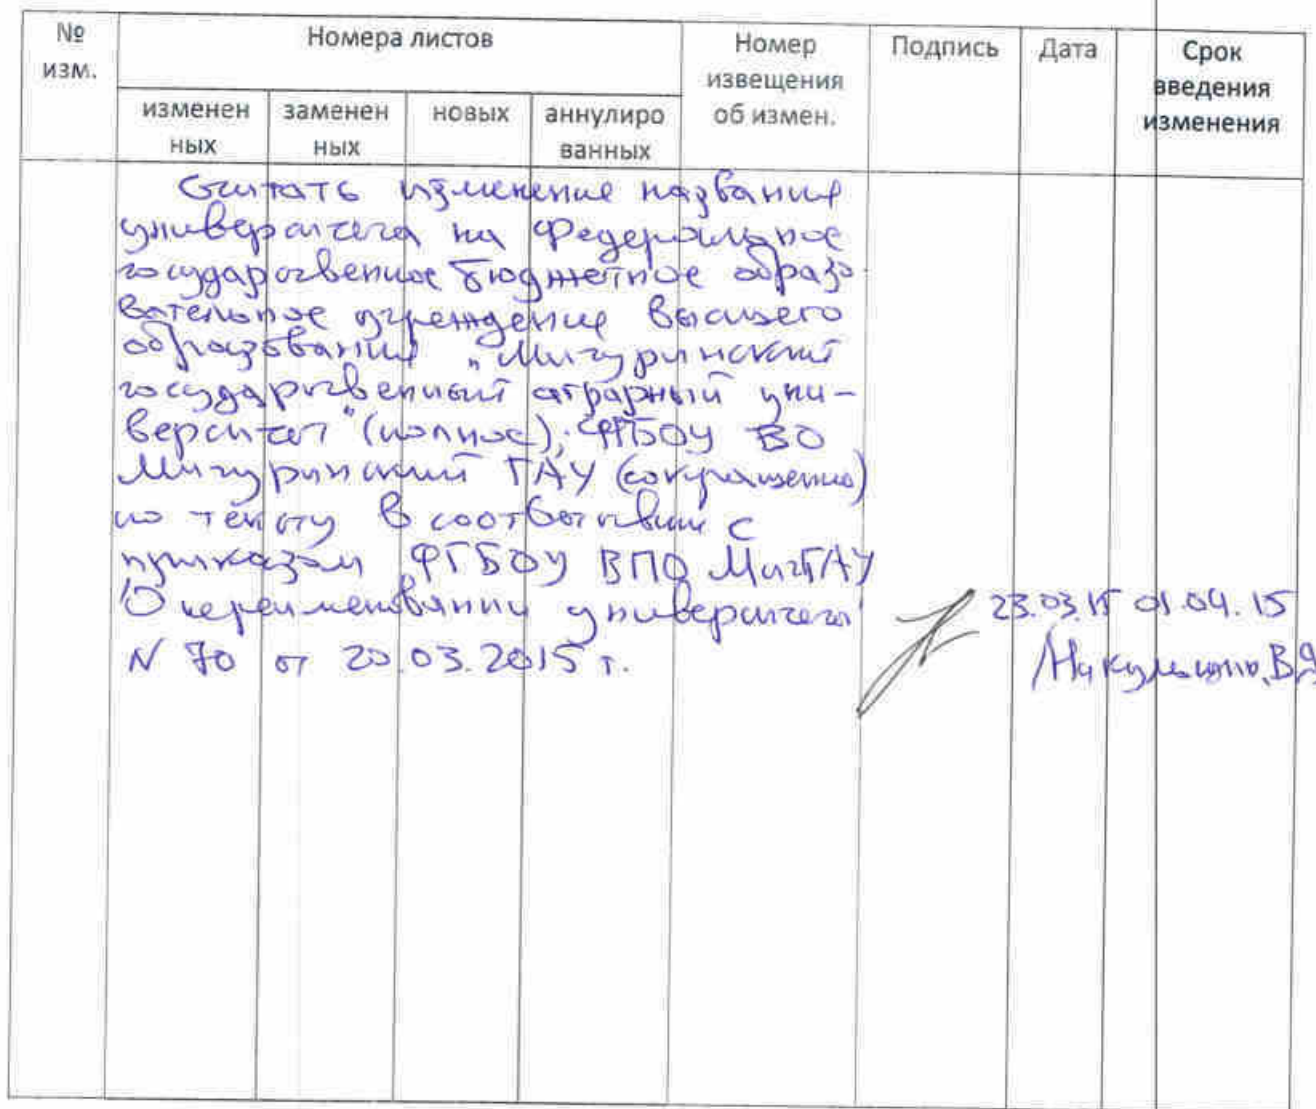 № изм. Номера листов Номер извещения об измен. Подпись Дата Срок введения изменения
изменен ных заменен ных новых аннулиро ванных
Считать изменение названия
университета на Федеральное
государственное бюджетное образо-
вательное учреждение высшего
образования „Мичуринский
государственный аграрный уни-
верситет" (полное); ФГБОУ ВО
Мичуринский ГАУ (сокращенно)
по тексту в соответствии с
приказом ФГБОУ ВПО МичГАУ
"О переименовании университета" 23.03.15 01.04.15
N 70 от 20.03.2015 г.